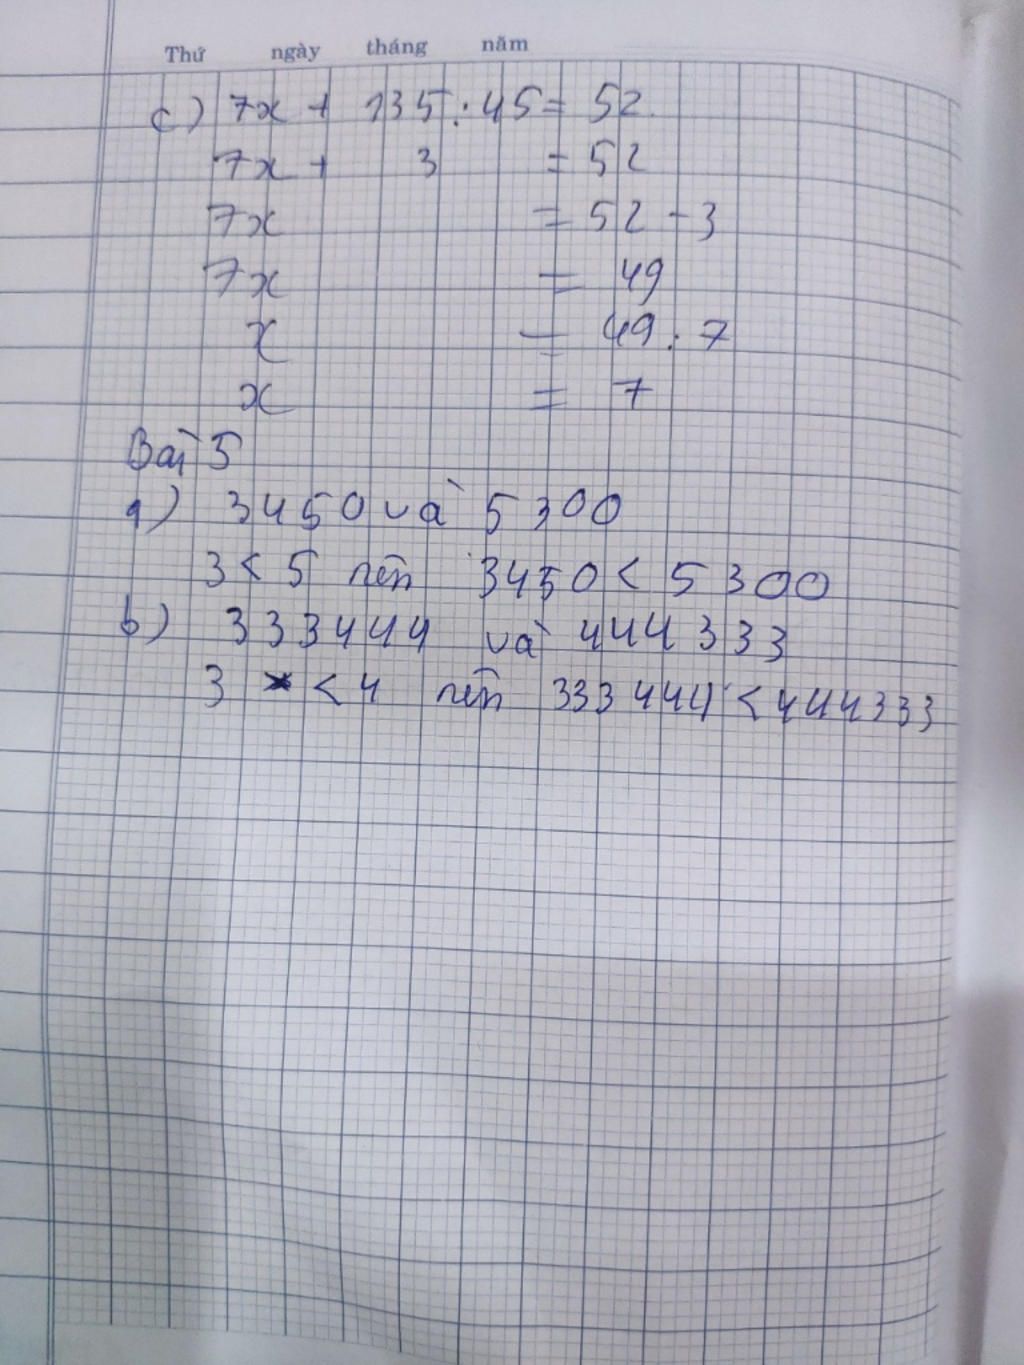 Thứ ngày tháng năm
c) 7x + 135 : 45 = 52
7x + 3 = 52
7x = 52 - 3
7x = 49
x = 49 : 7
x = 7
Bài 5
a) 3450 và 5300
3 < 5 nên 3450 < 5300
b) 333444 và 444333
3 < 4 nên 333444 < 444333